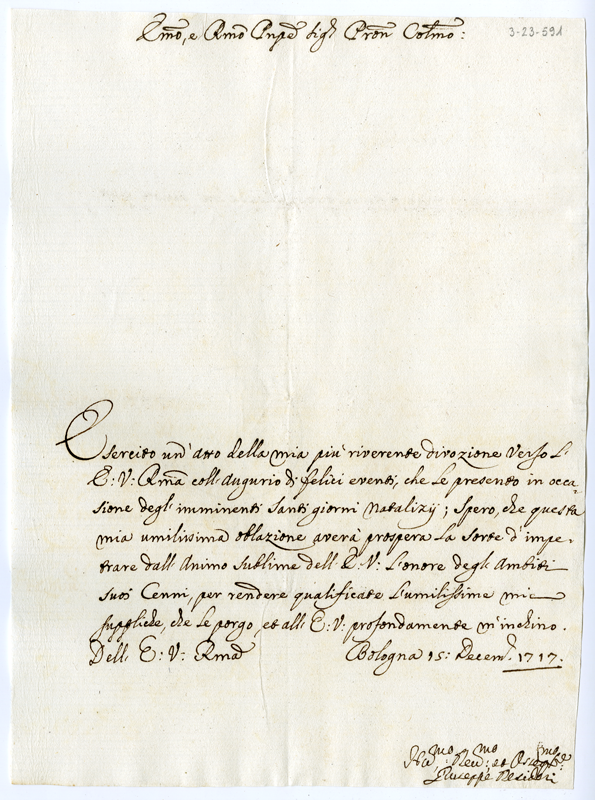 Emo, e Rmo Pnpe Sigr Pron Colmo:
3-23-591
Esercito un' atto della mia più riverente divozione verso l'
E: V: Rma coll' augurio di felici eventi, che le presento in occa=
sione degl' imminenti santi giorni natalizij; spero, che questa
mia umilissima oblazione averà prospera la sorte d' impe=
trare dall' Animo sublime dell' E: V: l' onore degl' Ambiti
suoi Cenni, per rendere qualificate l' umilissime mie
suppliche, che le porgo, et all' E: V: profondamente m' inchino.
Dell' E: V: Rma Bologna 15: Decem. 1717.
Giuseppe